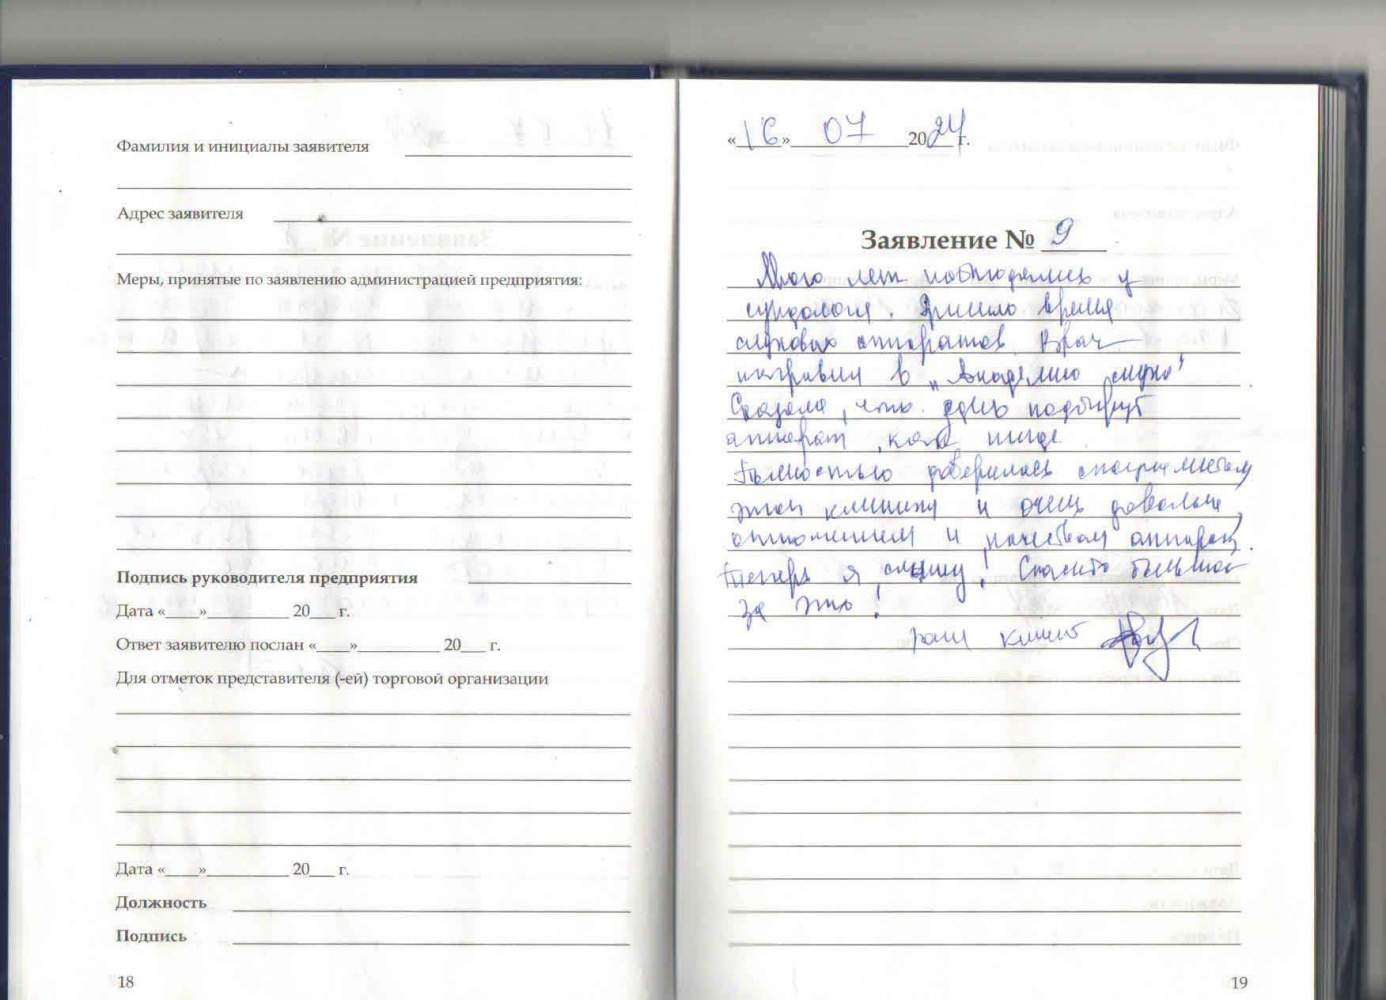 Фамилия и инициалы заявителя
Адрес заявителя
Меры, принятые по заявлению администрацией предприятия:
Подпись руководителя предприятия
Дата «____»__________ 20___ г.
Ответ заявителю послан «____»__________ 20___ г.
Для отметок представителя (-ей) торговой организации
Дата «____»__________ 20___ г.
Должность
Подпись
18
«16» 07 2024 г.
Заявление № 9
Много лет наблюдались у
сурдолога. Пришло время
слуховых аппаратов. Врач
направил в „Академию слуха"
Сказала, что здесь подберут
аппарат, как
Полностью доверилась специалистам
этой клиники и очень довольна
отношением и качеством аппарата.
Теперь я слышу! Спасибо большое
за это!
ваш клиент
19